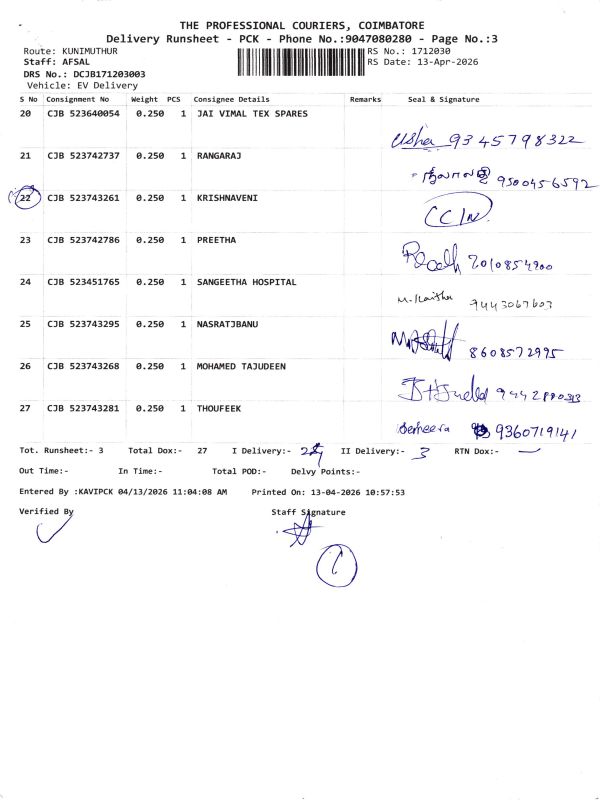 THE PROFESSIONAL COURIERS, COIMBATORE
Delivery Runsheet - PCK - Phone No.:9047080280 - Page No.:3
Route: KUNIMUTHUR RS No.: 1712030
Staff: AFSAL RS Date: 13-Apr-2026
DRS No.: DCJB171203003
Vehicle: EV Delivery
S No Consignment No Weight PCS Consignee Details Remarks Seal & Signature
20 CJB 523640054 0.250 1 JAI VIMAL TEX SPARES
Usha 9345798322
21 CJB 523742737 0.250 1 RANGARAJ
9500456592
22 CJB 523743261 0.250 1 KRISHNAVENI
CCIN
23 CJB 523742786 0.250 1 PREETHA
7010854900
24 CJB 523451765 0.250 1 SANGEETHA HOSPITAL
9443067603
25 CJB 523743295 0.250 1 NASRATJBANU
8608572995
26 CJB 523743268 0.250 1 MOHAMED TAJUDEEN
27 CJB 523743281 0.250 1 THOUFEEK
9360719141
Tot. Runsheet:- 3 Total Dox:- 27 I Delivery:- II Delivery:- 3 RTN Dox:- —
Out Time:- In Time:- Total POD:- Delvy Points:-
Entered By :KAVIPCK 04/13/2026 11:04:08 AM Printed On: 13-04-2026 10:57:53
Verified By Staff Signature